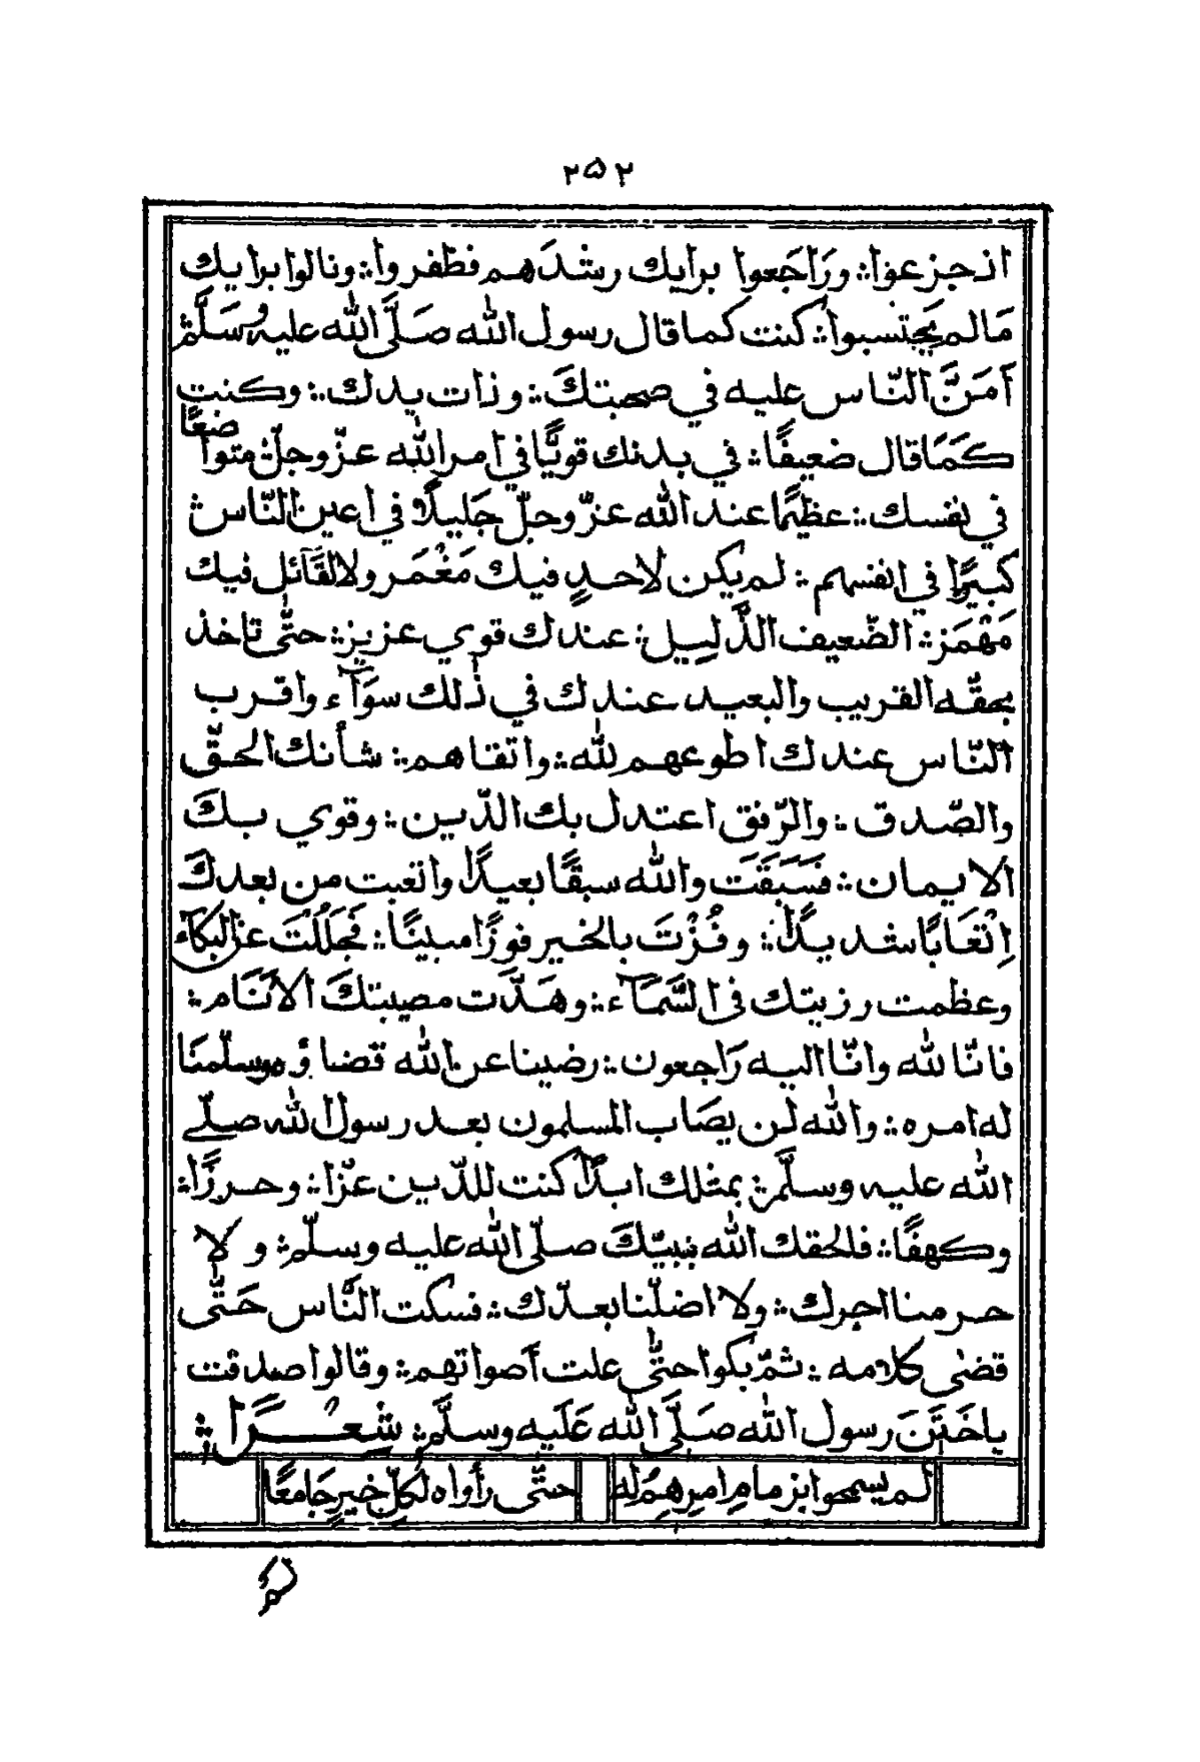 ٢٥٢
اذ جزعوا؞ ورَاجَعوا برايك رشدَهم فظفروا؞ ونالوا برايك
مَا لم يَحتسبوا؞ كنت كما قال رسول الله صَلَّى الله عليه وسَلَّم؞
آمَنَّ النّاس عليه في صحبتكَ؞ وذات يدك؞ وكنت
كَمَا قال ضعيفًا؞ في بدنك قويًّا في امر الله عزّ وجلّ؞ متواضعًا
في نفسك؞ عظيمًا عند الله عزّ وجلّ جَليلًا في اعين النّاس؞
كبيرًا في انفسهم؞ لم يكن لاحدٍ فيك مَغْمَز ولا لقَآئل فيك
مَهْمَز؞ الضّعيف الذَّليل؞ عندك قوي عزيز؞ حتّٰى تاخذ
بحقّه القريب والبعيد عندك في ذٰلك سوَآء واقرب
النّاس عندك اطوعهم لله؞ واتقاهم؞ شأنك الحقّ
والصّدق؞ والرّفق اعتدل بك الدّين؞ وقوي بكَ
الايمان؞ فسَبَقَت والله سبقًا بعيدًا واتعبت من بعدكَ
اِتْعَابًا شديدًا؞ وفُزْتَ بالخير فوزًا مبينًا؞ فَجَلَلْتَ عن البكآء
وعظمت رزيتك في السَّمَآء؞ وهَدَّت مصيبتكَ الاَنَام؞
فانّا لله وانّا اليه رَاجعون؞ رضينا عن الله قضاؤه وسلّمنَا
له امره؞ والله لن يصَاب المسلمون بعد رسول الله صلّى
الله عليه وسلَّم؞ بمثلك ابدًا كنت للدّين عزّا؞ وحرزًا؞
وكهفًا؞ فلحقك الله بنبيّكَ صلّى الله عليه وسلّم؞ ولا
حرمنا اجرك؞ ولا اضلّنا بعدك؞ فسكت النَّاس حَتّٰى
قضٰى كلامه؞ ثمّ بكوا حتّٰى علت أصواتهم؞ وقالوا صدقت
ياخَتَنَ رسول الله صَلَّى الله عَلَيه وسلَّم؞ شِعْرًا؞
لم يسمحوا بزمامِ امرِهِم له حتّى رأواه لكلّ خيرٍ جَامعًا